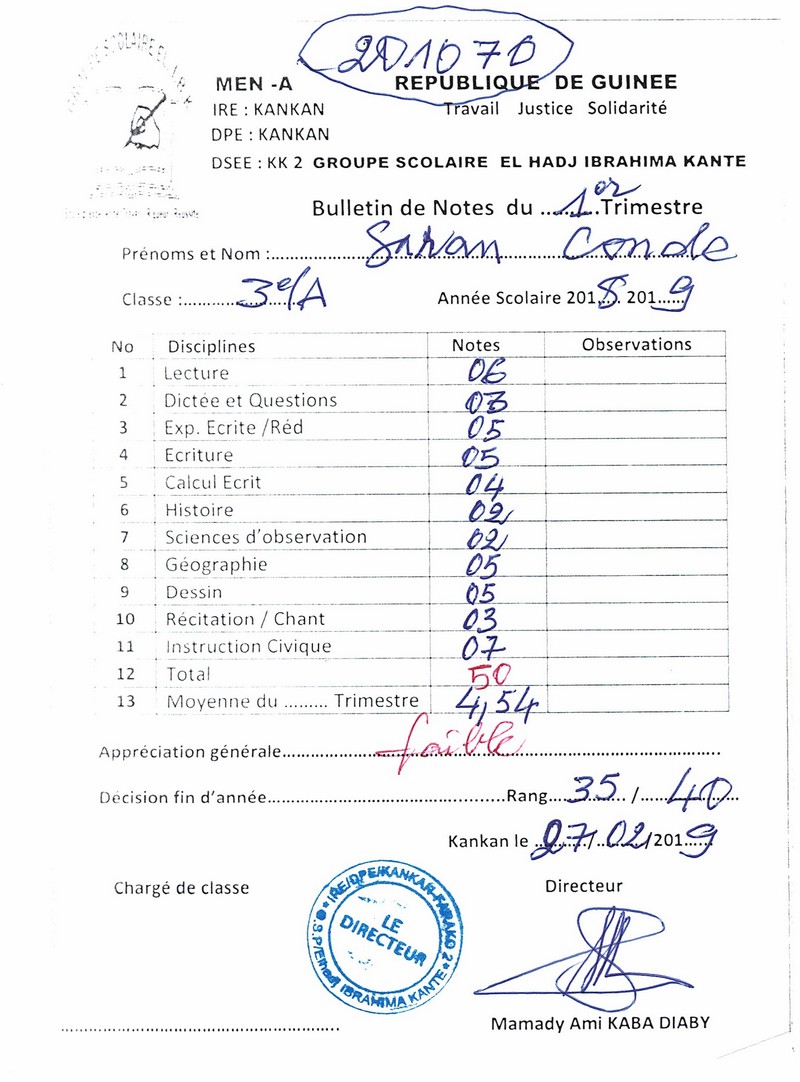 201070
MEN -A REPUBLIQUE DE GUINEE
IRE : KANKAN Travail Justice Solidarité
DPE : KANKAN
DSEE : KK 2 GROUPE SCOLAIRE EL HADJ IBRAHIMA KANTE
Bulletin de Notes du ...1er...Trimestre
Prénoms et Nom :........Saran Conde
Classe :........3e/A Année Scolaire 2018. 2019
No Disciplines Notes Observations
1 Lecture 06
2 Dictée et Questions
3 Exp. Ecrite /Réd 05
4 Ecriture 05
5 Calcul Ecrit 04
6 Histoire 02
7 Sciences d'observation 02
8 Géographie 05
9 Dessin 05
10 Récitation / Chant 03
11 Instruction Civique 07
12 Total 50
13 Moyenne du ......... Trimestre 4,54
Appréciation générale........faible........
Décision fin d'année........Rang...35 /......40
Kankan le 27/02/2019
Chargé de classe Directeur
IRE/DPE/KANKAN-FARAKO 2
LE DIRECTEUR
G.S.P/Elhadj IBRAHIMA KANTE
Mamady Ami KABA DIABY